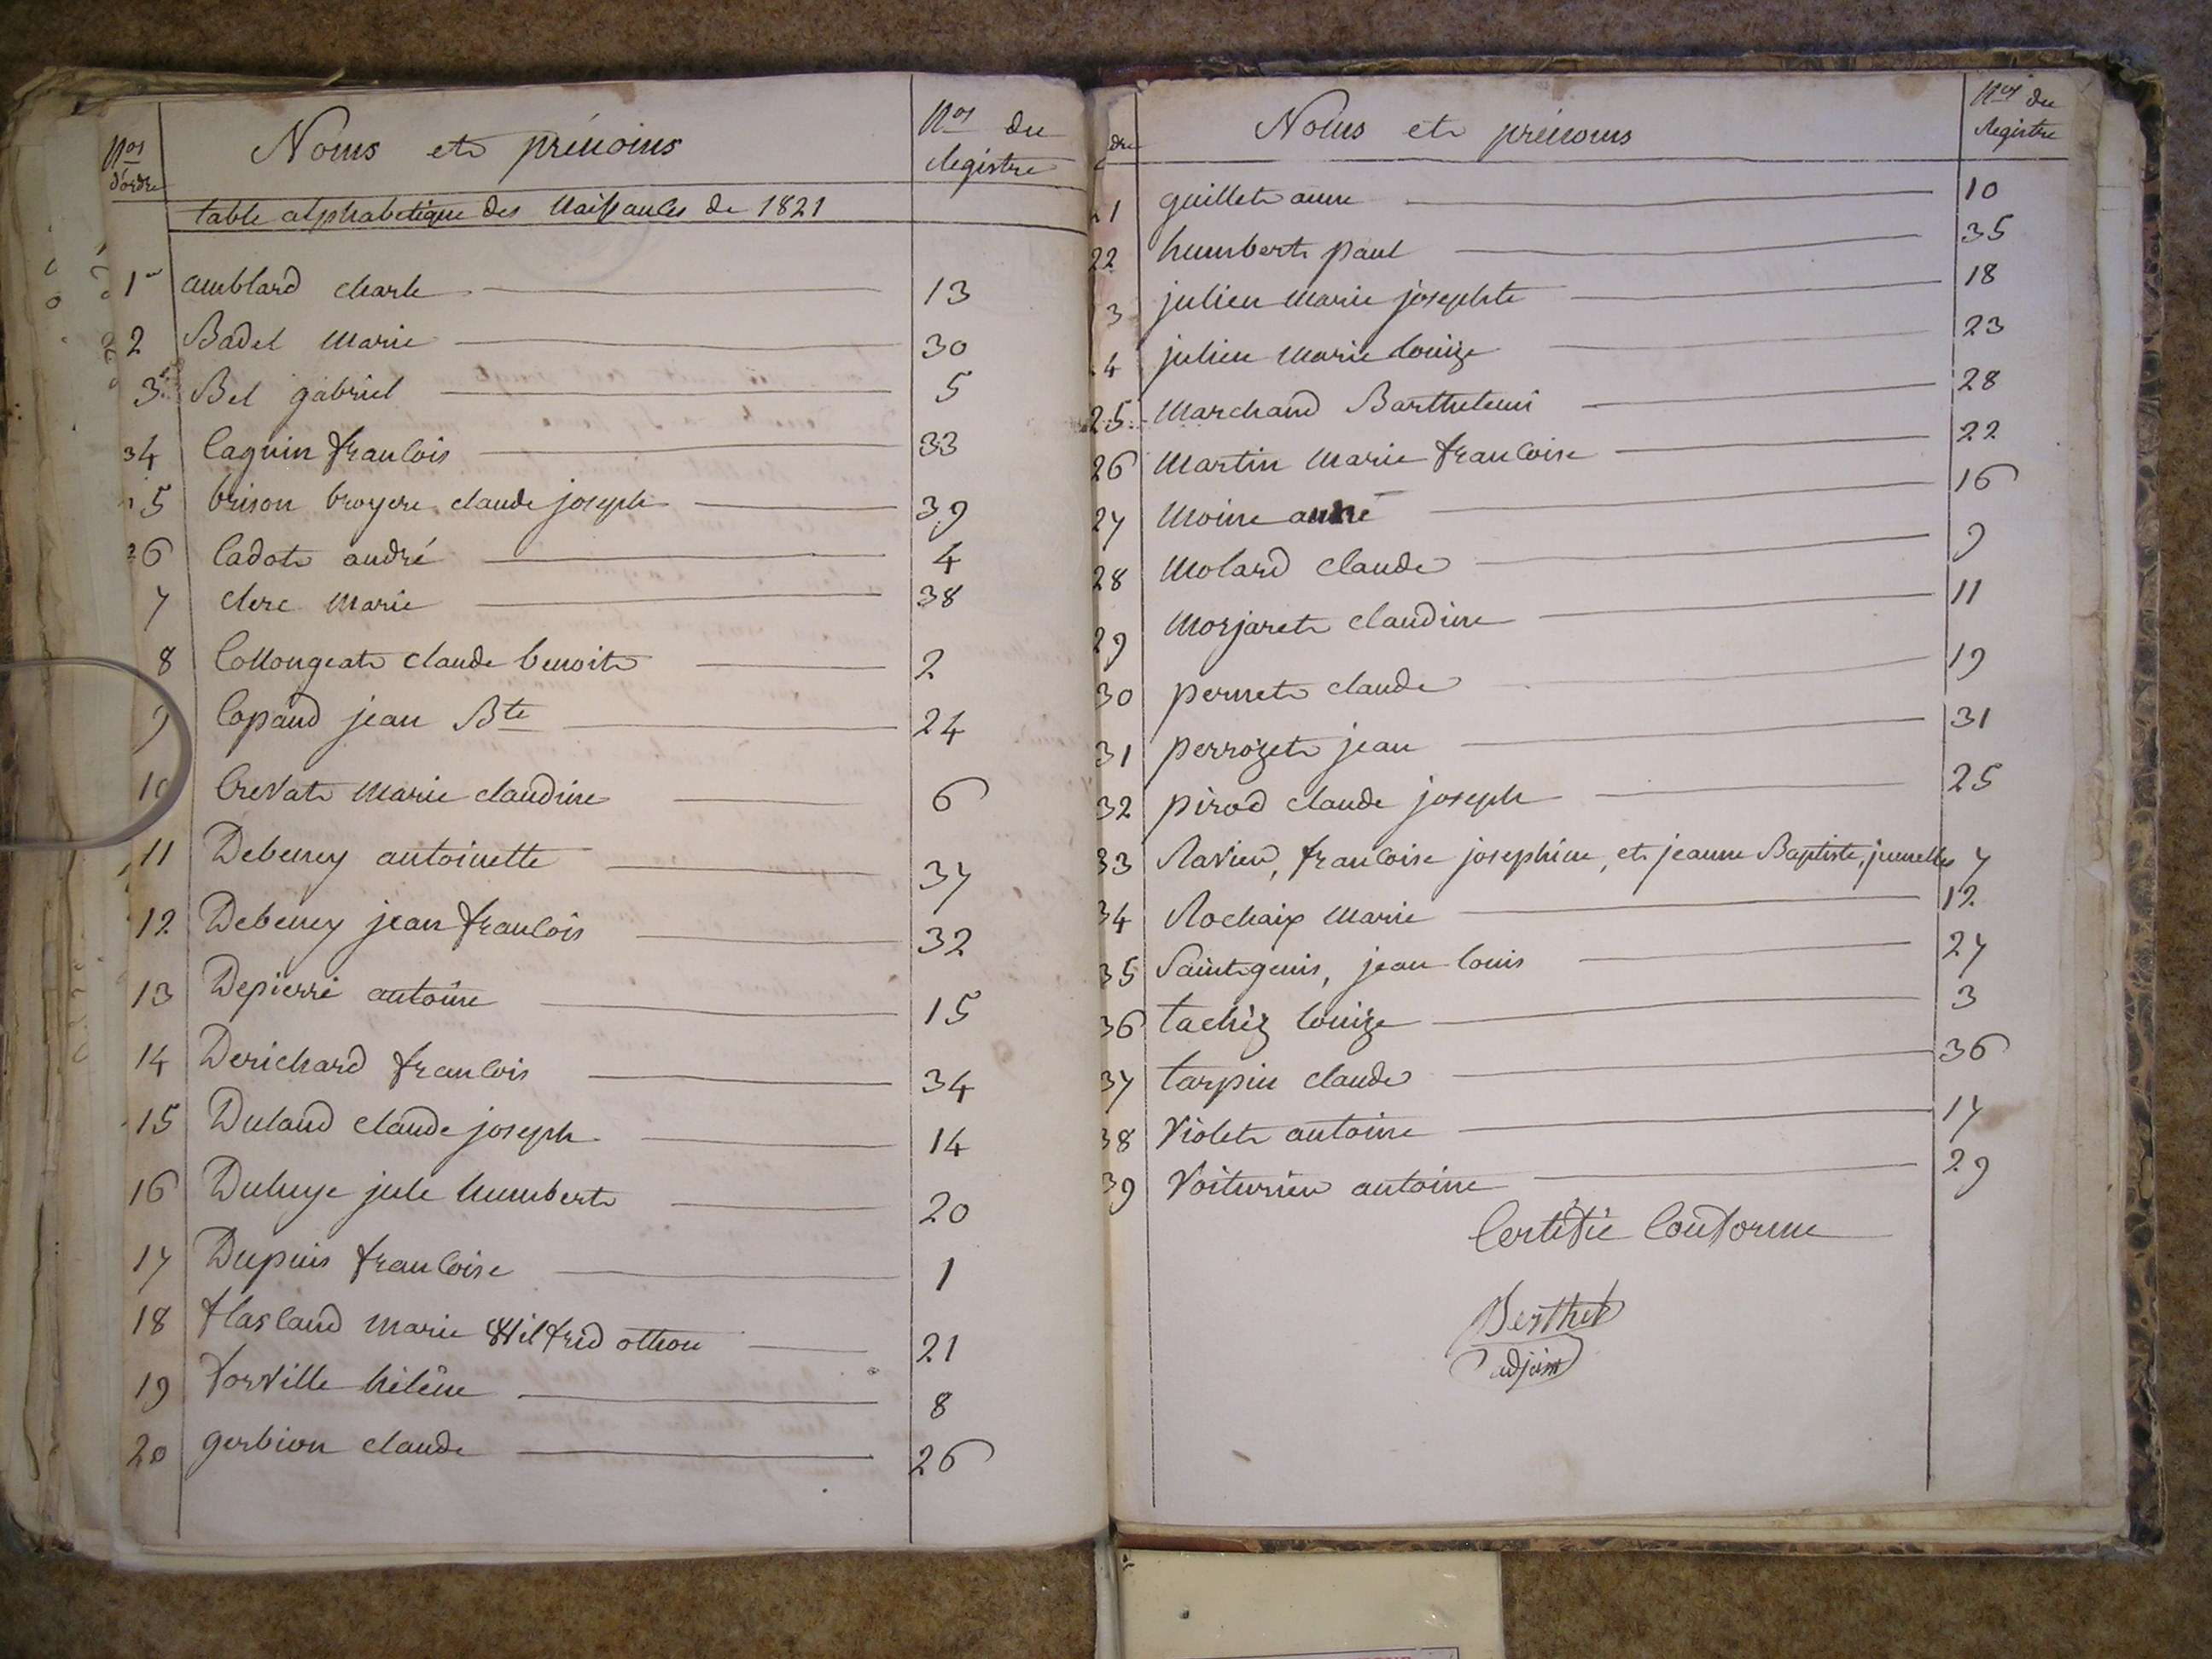 Nos d'ordre Noms et prénoms Nos du Registre
table alphabetique des Naissances de 1821
1 amblard charle 13
2 Badel Marie 30
3 Bel gabriel 5
4 Caquin francois 33
5 brison broyere claude joseph 39
6 Cadot andré 4
7 clerc Marie 38
8 Collongeat claude benoit 2
9 Copand jean Bte 24
10 Crevat Marie claudine 6
11 Debeney antoinette 37
12 Debeney jean francois 32
13 Depierre antoine 15
14 Derichard francois 34
15 Duland claude joseph 14
16 Duhuye jule humbert 20
17 Dupuis francoise 1
18 flasland Marie Wilfrid othon 21
19 forville héléne 8
20 gerbion claude 26
dre Noms et prénoms Nos du Registre
21 guillet anne 10
22 humbert paul 35
3 julien Marie josephte 18
4 julien Marie louize 23
25 Marchand Barthelemi 28
26 Martin Marie francoise 22
27 Moine andré 16
28 Molard claude 9
29 Morjaret claudine 11
30 pernet claude 19
31 perrozet jean 31
32 pirod claude joseph 25
33 Ravier, francoise josephine, et jeanne Baptiste, jumelles 7
34 Rochaix Marie 12
35 Saintgenis, jean louis 27
36 tachiz louize 3
37 tarpin claude 36
38 Violet antoine 17
39 Voiturier antoine 29
Certifié Conforme
Berthet
adjoint